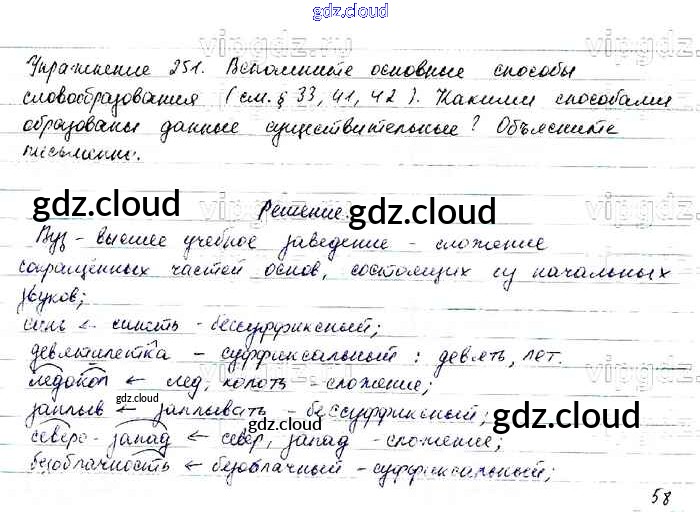 gdz.cloud
vipgdz.ru
Упражнение 251. Вспомните основные способы
словообразования (см. § 33, 41, 42). Какими способами
образованы данные существительные? Объясните
письменно.
gdz.cloud
Решение.
gdz.cloud
Вуз – высшее учебное заведение – сложение
сокращённых частей основ, состоящих из начальных
звуков;
синь ← синеть – бессуффиксный;
девятилетка – суффиксальный: девять, лет.
ледокол ← лед, колоть – сложение;
gdz.cloud
заплыв ← заплывать – бессуффиксный;
gdz.cloud
северо-запад ← север, запад – сложение;
безоблачность ← безоблачный – суффиксальный;
58